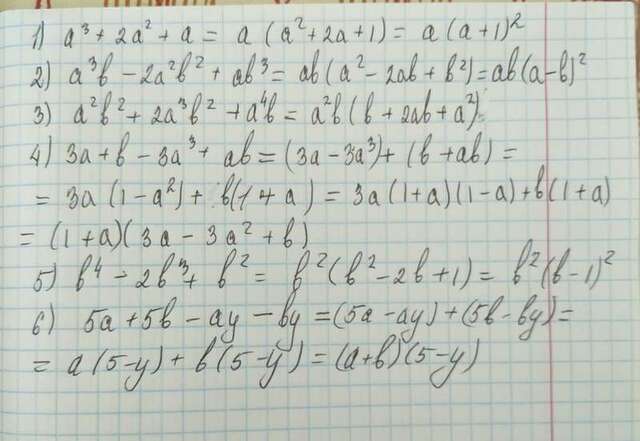 1) a³ + 2a² + a = a (a² + 2a + 1) = a (a + 1)²
2) a³b − 2a²b² + ab³ = ab (a² − 2ab + b²) = ab (a − b)²
3) a²b² + 2a³b² + a⁴b = a²b (b + 2ab + a²)
4) 3a + b − 3a³ + ab = (3a − 3a³) + (b + ab) =
= 3a (1 − a²) + b(1 + a) = 3a (1 + a) (1 − a) + b (1 + a)
= (1 + a) (3a − 3a² + b)
5) b⁴ − 2b³ + b² = b² (b² − 2b + 1) = b² (b − 1)²
6) 5a + 5b − ay − by = (5a − ay) + (5b − by) =
= a (5 − y) + b (5 − y) = (a + b) (5 − y)